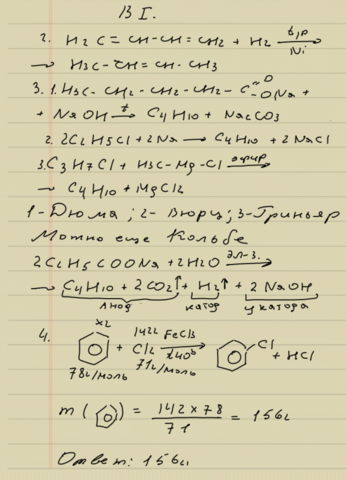 В I.
2. H₂C=CH-CH=CH₂ + H₂ t,p Ni →
→ H₃C-CH=CH-CH₃
3. 1. H₃C-CH₂-CH₂-CH₂-C=O-ONa +
+ NaOH t→ C₄H₁₀ + Na₂CO₃
2. 2C₂H₅Cl + 2Na → C₄H₁₀ + 2NaCl
3. C₃H₇Cl + H₃C-Mg-Cl эфир →
→ C₄H₁₀ + MgCl₂
1-Дюма; 2- Вюрц; 3-Гриньяр
Можно еще Кольбе
2C₂H₅COONa + 2H₂O эл-з. →
→ C₄H₁₀ + 2CO₂↑ + H₂↑ + 2NaOH
Анод катод у катода
4. x г 142г FeCl₃
+ Cl₂ t40° → Cl + HCl
78г/моль 71г/моль
m ( ) = 142 × 78 / 71 = 156г
Ответ: 156г